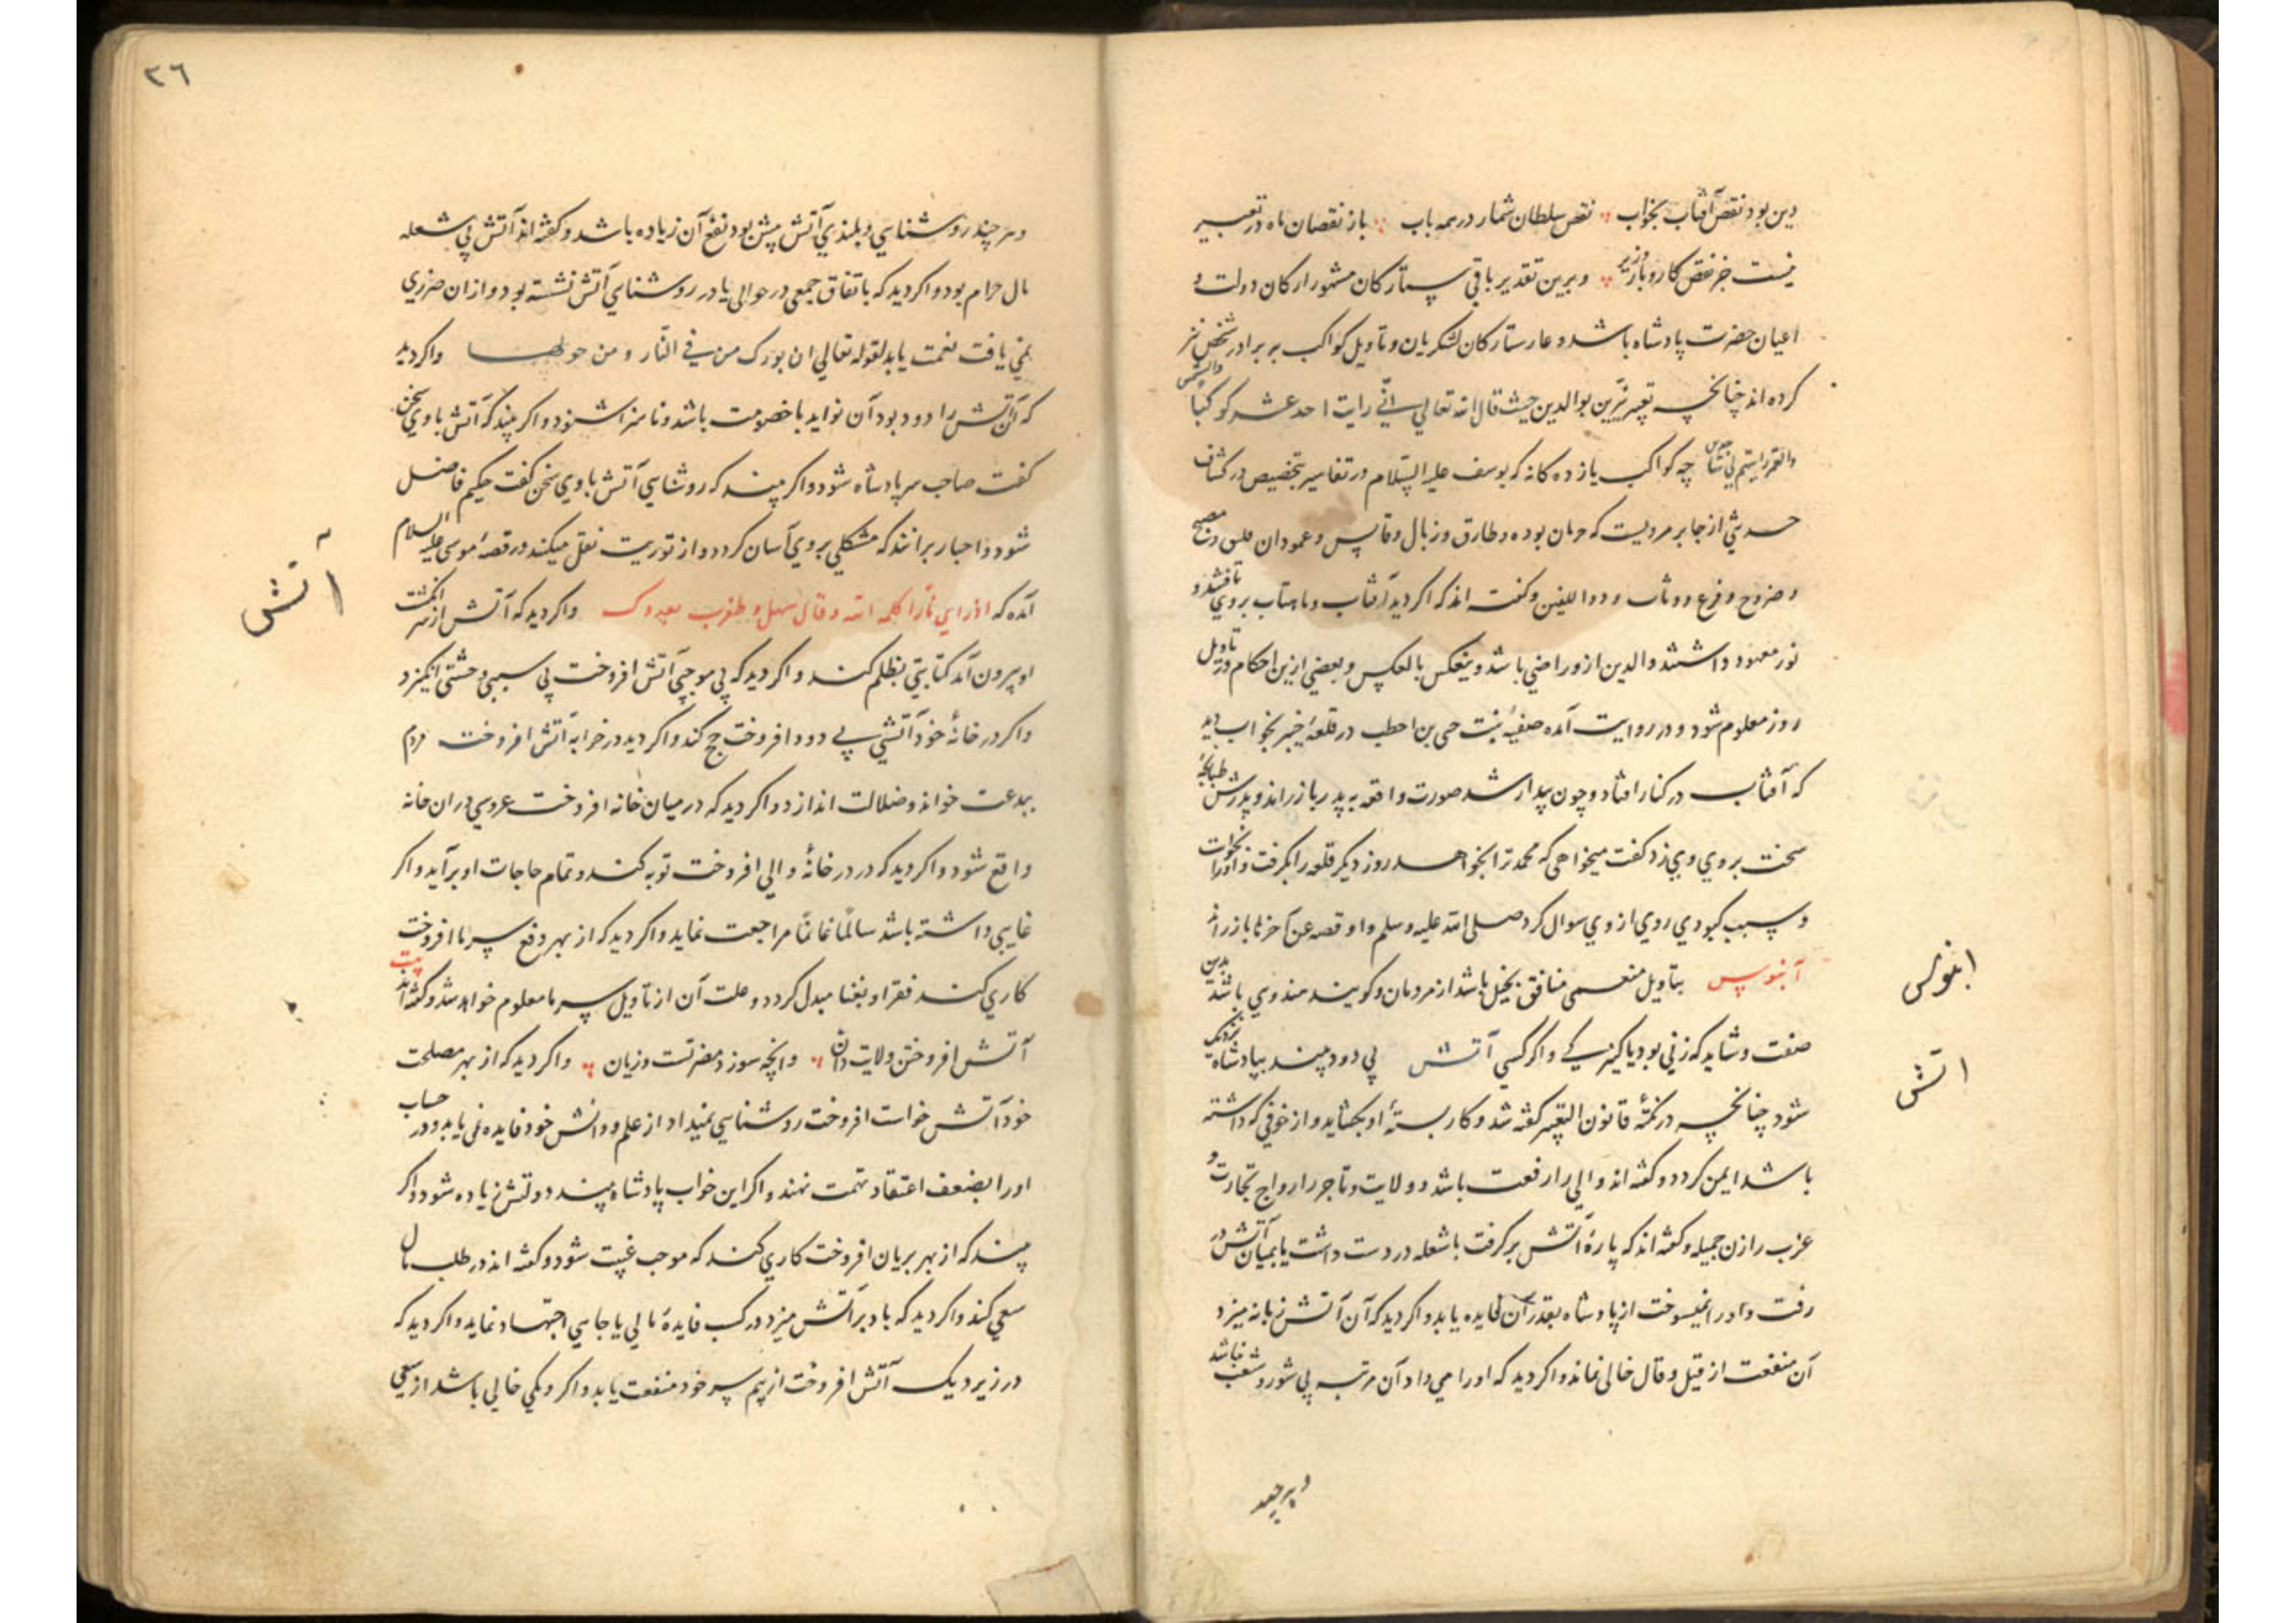 دین بود نقص آفتاب بخواب نقص سلطان شمار در همه باب باز نقصان ماه در تعبیر
نیست جز نقص کار و بار وزیر و برین تقدیر باقی ستارکان مشهور ارکان دولت و
اعیان حضرت پادشاه باشد و عار ستارکان لشکریان و تاویل کواکب به برادر شخص نیز
کرده اند چنانچه تعبیر نیّرین بوالدین حیث قال الله تعالی انّی رایت احد عشر کوکبا والشمس
والقمر رایتهم لی ساجدین چه کواکب یازده کانه که یوسف علیه السّلام در تفاسیر بتخصیص در کشاف
حدیثی از جابر مرویست که جریان بوده و طارق و زبال و قابس و عمودان فلیق و مصبح
و ضروح و فرغ و وثاب و ذوالکتفین و گفته اند که اکر دید آفتاب و ماهتاب بروی تافتند و
نور معهود داشتند والدین ازو راضی باشد و ینعکس بالعکس و بعضی ازین احکام در تاویل
روز معلوم شود و در روایت آمده صفیه بنت حی بن اخطب در قلعهٔ خیبر بخواب دید
که آفتاب در کنار افتاد و چون بیدار شد صورت واقعه به پدر باز راند و پدرش طبانچهٔ
سخت بر روی وی زد کفت میخواهی که محمد ترا بخواهد روز دیکر قلعه را بکرفت و او را بخواست
و سبب کبودی روی از وی سوال کرد صلی الله علیه و سلم و او قصه عن آخرها باز راند
آبنوس بتاویل منعمی منافق بخیل باشد از مردمان و کویند هندوی باشد بدین
صفت و شاید که زنی بود یا کنیزکی و اکر کسی آتش بی دود بیند بپادشاه نزدیک
شود چنانچه در تکمهٔ قانون التعبیر کفته شد و کار بستهٔ او بکشاید و از خوفی که داشته
باشد ایمن کردد و کفته اند والی را رفعت باشد و ولایت و تاجر را رواج تجارت و
عزب را زن جمیله و کفته اند که پارهٔ آتش بر کرفت با شعله در دست داشت یا بمیان آتش در
رفت و او را نمیسوخت از پادشاه بقدر آن فایده یابد و اکر دید که آن آتش زبانه میزد
آن منفعت از قیل و قال خالی نماند و اکر دید که او را می داد آن مرتبه بی شور و شغب نباشد
و هر چند
ابنوس
آتش
٢٦
و هر چند روشنایی و بلندی آتش بیش بود نفع آن زیاده باشد و کفته اند آتش بی شعله
مال حرام بود و اکر دید که باتفاق جمعی در حوالی یا در روشنایی آتش نشسته بود و ازان ضرری
نمی یافت نعمت یابد لقوله تعالی ان بورک من فی النّار و من حولها و اکر دید
که آن آتش را دود بود آن فواید با خصومت باشد و ناسزا شنود و اکر بیند که آتش با وی سخن
کفت صاحب سر پادشاه شود و اکر بیند که روشنایی آتش با وی سخن کفت حکیم فاضل
شود و احبار برانند که مشکلی بر وی آسان کردد و از توریت نقل میکنند در قصهٔ موسی علیه السلام
آمده که اذ رای نارا کلمه الله و قال و اکر دید که آتش از سر انکشت
او بیرون آمد کتابتی بظلم کند و اکر دید که بی موجبی آتش افروخت بی سببی وحشتی انکیزد
و اکر در خانهٔ خود آتشی بی دود افروخت حج کند و اکر دید در خرابه آتش افروخت مردم
ببدعت خواند و ضلالت اندازد و اکر دید که در میان خانه افروخت عروسی دران خانه
واقع شود و اکر دید که در در خانهٔ والی افروخت توبه کند و تمام حاجات او برآید و اکر
غایبی داشته باشد سالماً غانماً مراجعت نماید و اکر دید که از بهر دفع سرما افروخت
کاری کند فقر او بغنا مبدل کردد و علت آن از تاویل سرما معلوم خواهد شد و کفته اند بیت
آتش افروختن ولایت دان وانچه سوزد مضرتست و زیان و اکر دید که از بهر مصلحت
خود آتش خواست افروخت روشنایی نمیداد از علم و دانش خود فایده نمی یابد و در حساب
او را بضعف اعتقاد تهمت نهند و اکر این خواب پادشاه بیند دولتش زیاده شود و اکر
بیند که از بهر بریان افروخت کاری کند که موجب غیبت شود و کفته اند در طلب مال
سعی کند و اکر دید که باد بر آتش میزد در کسب فایدهٔ مالی یا جاهی اجتهاد نماید و اکر دید که
در زیر دیک آتش افروخت از قیم سر خود منفعت یابد و اکر دیکی خالی باشد از سعی
آتش